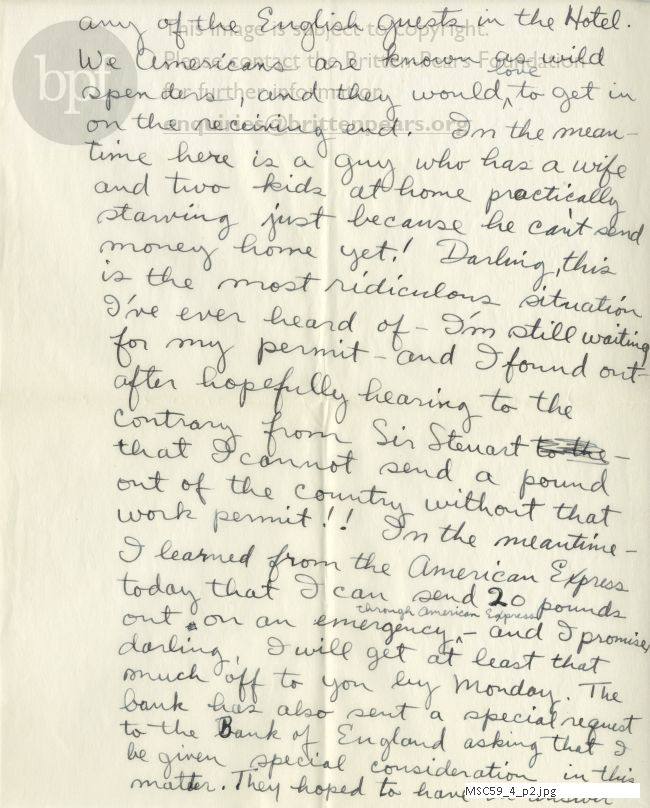 any of the English guests in the Hotel.
We Americans are known as wild
love
spenders, and they would, to get in
on the receiving end. In the mean-
time here is a guy who has a wife
and two kids at home practically
starving just because he can't send
money home yet! Darling, this
is the most ridiculous situation
I've ever heard of - I'm still waiting
for my permit - and I found out -
after hopefully hearing to the
contrary from Sir Steuart to the -
that I cannot send a pound
out of the country without that
work permit!! In the meantime -
I learned from the American Express
today that I can send 20 pounds
through American Express
out on an emergency, - and I promise,
darling, I will get at least that
much off to you by Monday. The
bank has also sent a special request
to the Bank of England asking that I
be given special consideration in this
matter. They hoped to have
This image is subject to copyright.
Please contact the Britten-Pears Foundation
for further information.
enquiries@brittenpears.org
bpf
MSC59_4_p2.jpg